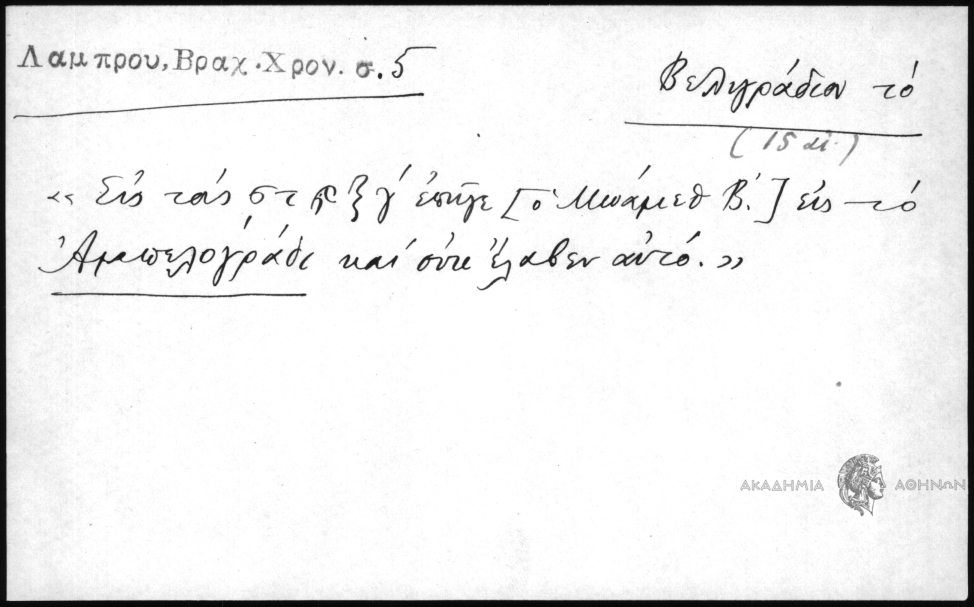 Λαμπρου, Βραχ. Χρον. σ. 5
Βελιγράδιον τό
(15 αἰ.)
«Εἰς τάς στ ϡ ξ γ΄ ἐπῆγε [ὁ Μωάμεθ Β΄.] εἰς τό
Ἀμπελογράδι καί οὐκ ἔλαβεν αὐτό.»
ΑΚΑΔΗΜΙΑ ΑΘΗΝΩΝ